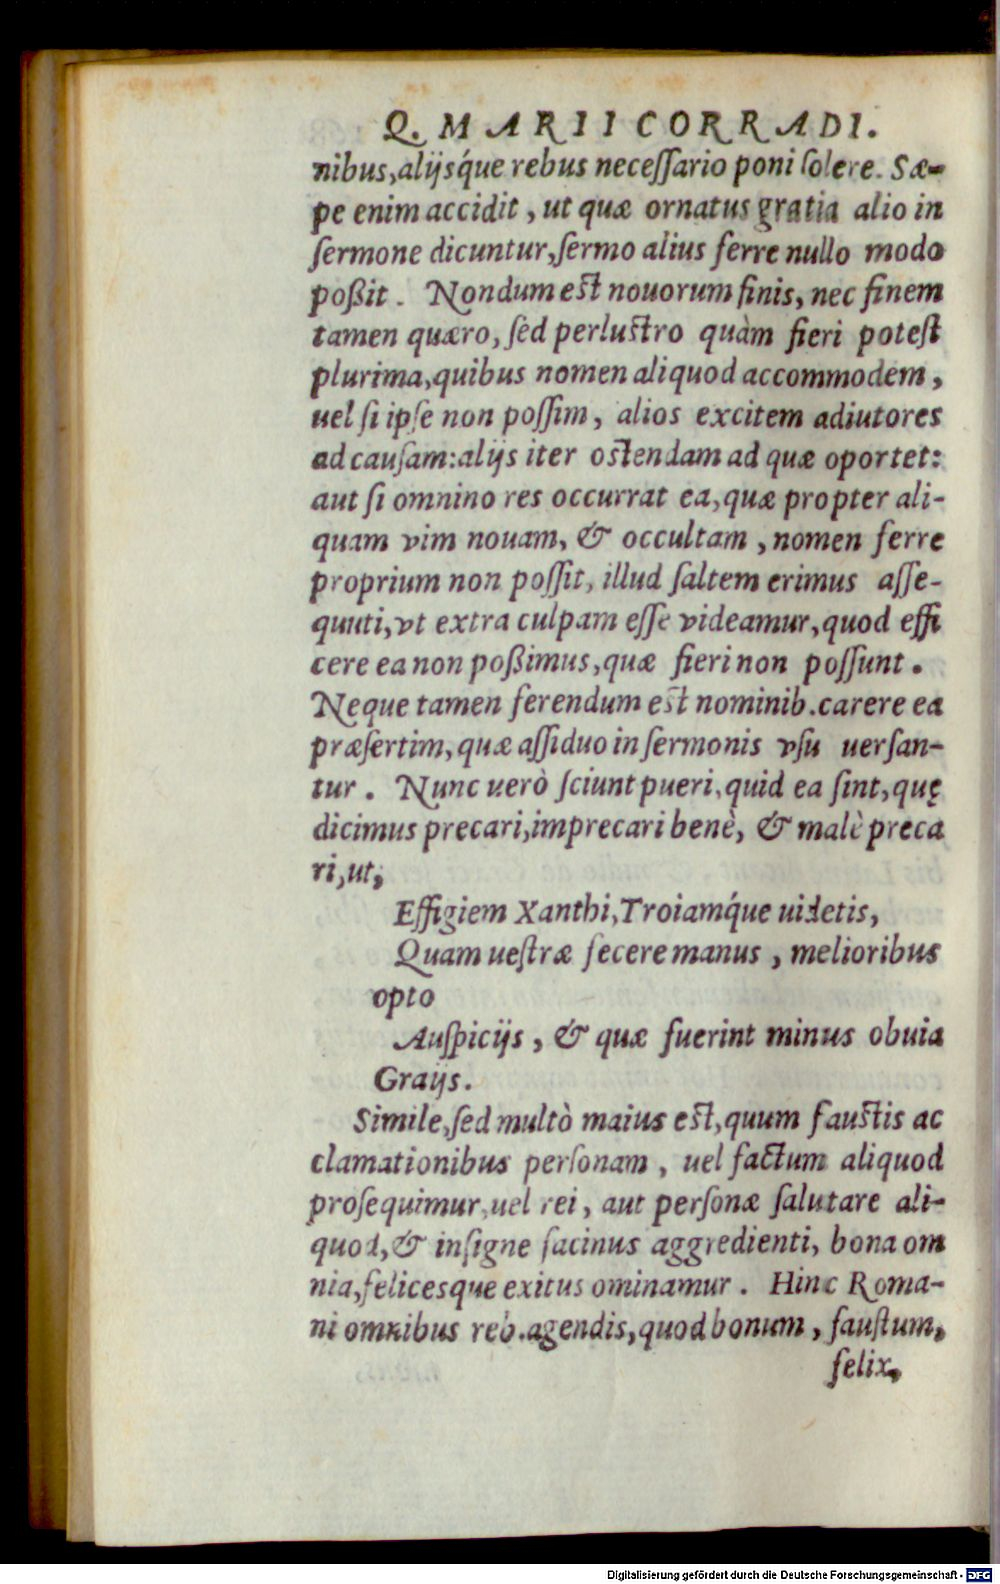 Q. MARII CORRADI.
nibus, alijsq́ue rebus neceſſario poni ſolere. Sæ-
pe enim accidit, ut quæ ornatus gratia alio in
ſermone dicuntur, ſermo alius ferre nullo modo
poßit. Nondum eſt nouorum finis, nec finem
tamen quæro, ſed perluſtro quàm fieri poteſt
plurima, quibus nomen aliquod accommodem,
uel ſi ipſe non poſſim, alios excitem adiutores
ad cauſam: alijs iter oſtendam ad quæ oportet:
aut ſi omnino res occurrat ea, quæ propter ali-
quam vim nouam, & occultam, nomen ferre
proprium non poſſit, illud ſaltem erimus aſſe-
quuti, vt extra culpam eſſe videamur, quod effi
cere ea non poßimus, quæ fieri non poſſunt.
Neque tamen ferendum eſt nominib. carere ea
præſertim, quæ aſſiduo in ſermonis vſu uerſan-
tur. Nunc uerò ſciunt pueri, quid ea ſint, quę
dicimus precari, imprecari benè, & malè preca
ri, ut,
Effigiem Xanthi, Troiamq́ue uidetis,
Quam ueſtræ fecere manus, melioribus
opto
Auſpicijs, & quæ fuerint minus obuia
Graijs.
Simile, ſed multò maius eſt, quum fauſtis ac
clamationibus perſonam, uel factum aliquod
proſequimur, uel rei, aut perſonæ ſalutare ali-
quod, & inſigne facinus aggredienti, bona om
nia, felicesque exitus ominamur. Hinc Roma-
ni omnibus reb. agendis, quod bonum, fauſtum,
felix,
Digitalisierung gefördert durch die Deutsche Forschungsgemeinschaft - DFG